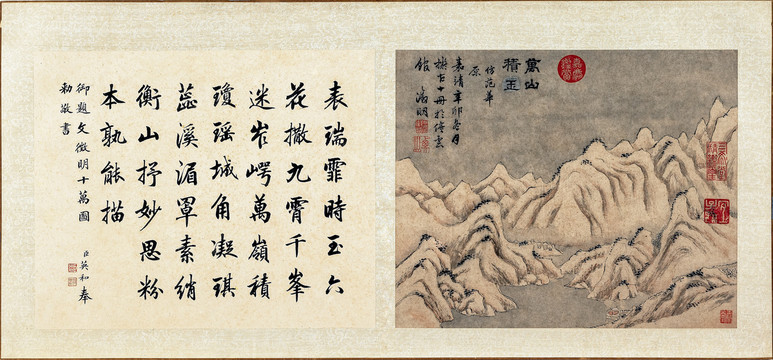 萬山
積玉
仿范華
原
嘉靖辛卯月
十冊於停雲
館 徵明
表瑞霏時玉六
花撒九霄千峯
迷岝崿萬嶺積
瓊瑤城角凝琪
蕋溪湄罩素綃
衡山抒妙思粉
本孰能描
御題文徵明十萬圖 臣英和奉
勅敬書